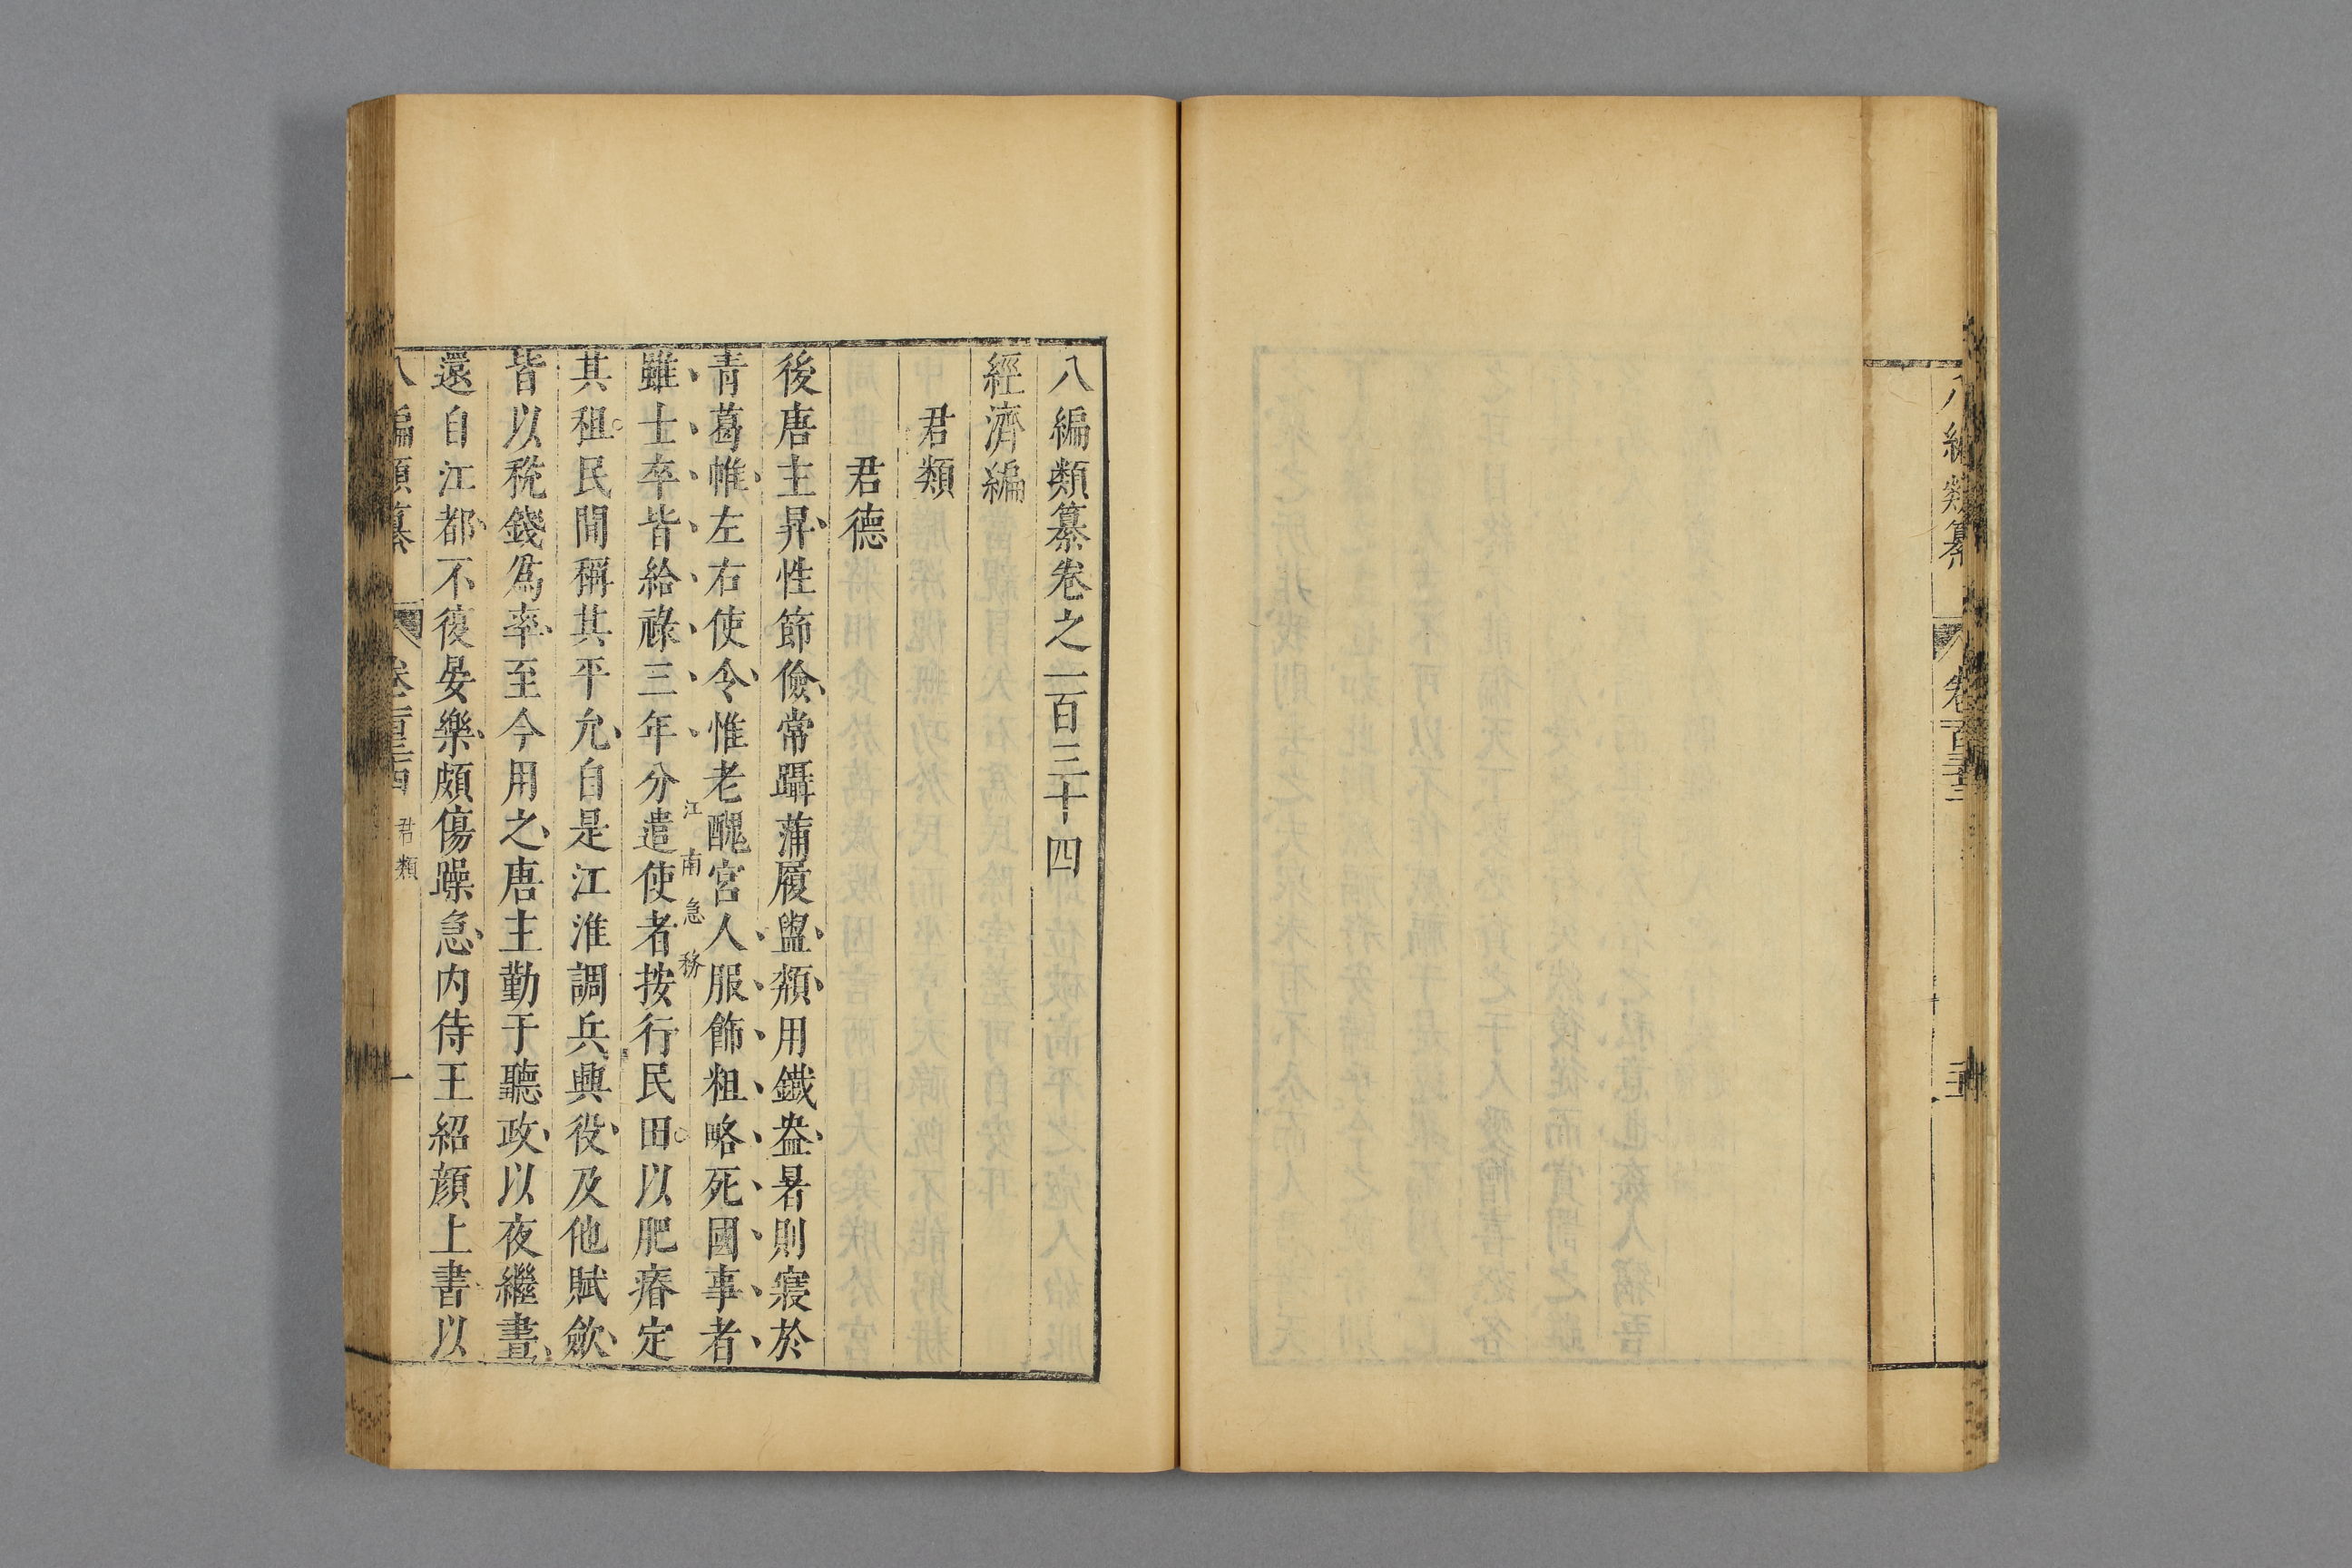 八編類纂卷之一百三十四
經濟編
君類
君德
後唐主昪性節儉常躡蒲履盥頮用鐵盎暑則寢於
青葛帷左右使令惟老醜宮人服飾粗略死國事者
江南急務
雖士卒皆給祿三年分遣使者按行民田以肥瘠定
其租民間稱其平允自是江淮調兵興役及他賦歛
皆以稅錢爲率至今用之唐主勤于聽政以夜繼晝
還自江都不復晏樂頗傷躁急內侍王紹顏上書以
八編類纂 卷一百三十四 君類 一